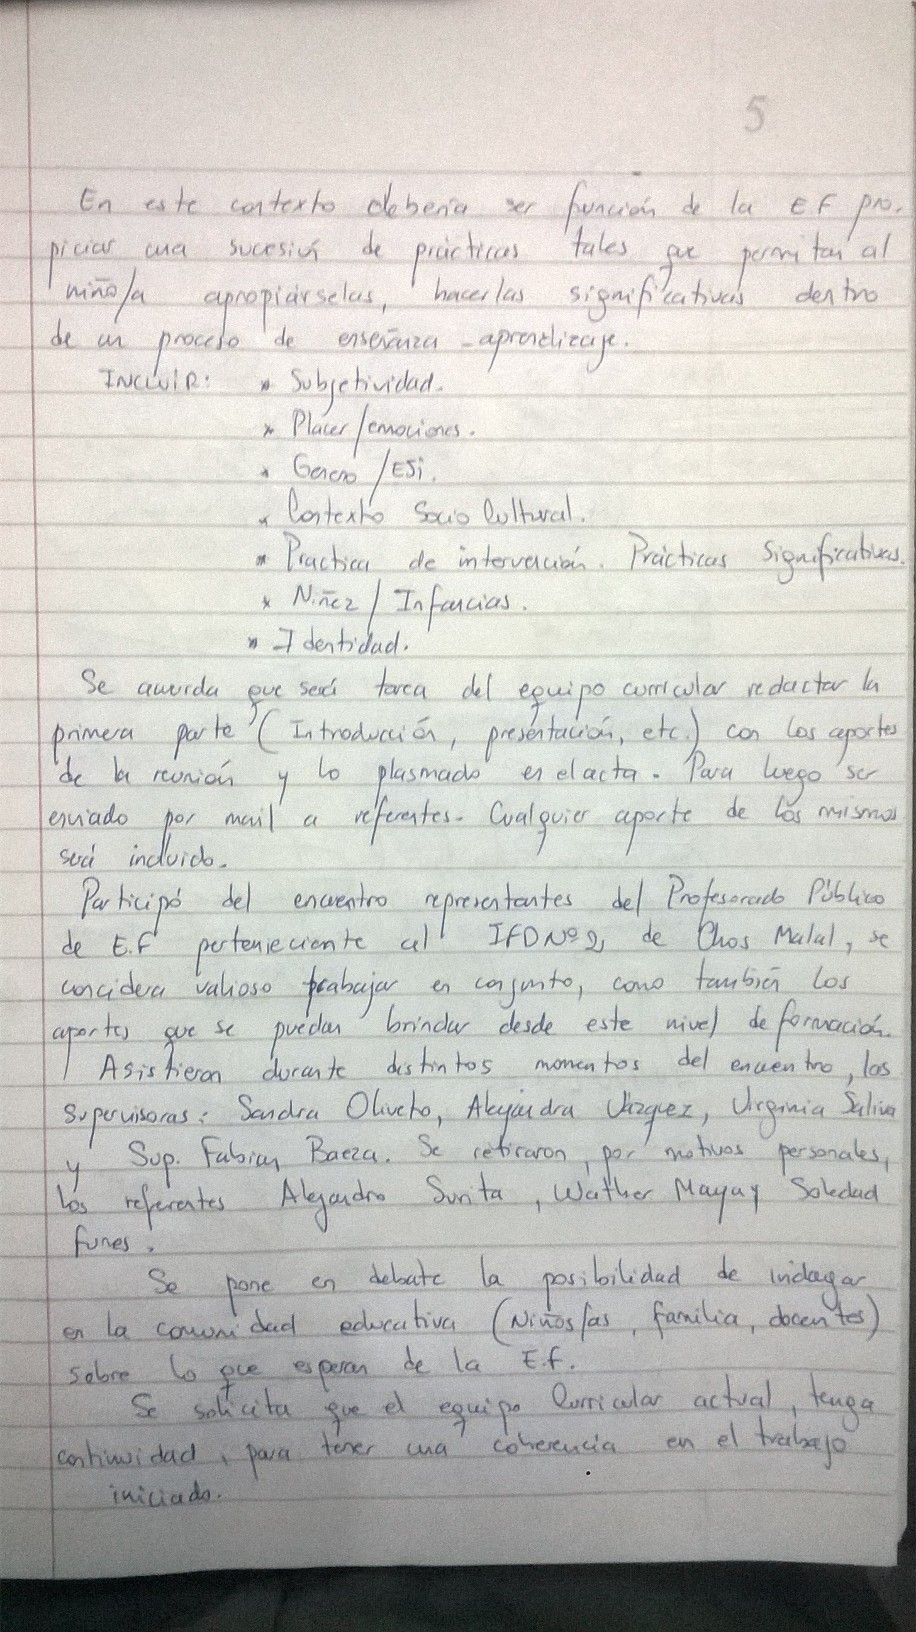 5
En este contexto debería ser función de la EF pro-
piciar una sucesión de prácticas tales que permitan al
niño/a apropiárselas, hacerlas significativas dentro
de un proceso de enseñanza - aprendizaje.
INCLUIR: * Subjetividad.
* Placer/emociones.
* Genero/ESi.
* Contexto Socio Cultural.
* Practica de intervención. Prácticas Significativas.
* Niñez / Infancias.
* Identidad.
Se acuerda que será tarea del equipo curricular redactar la
primera parte (Introducción, presentación, etc.) con los aportes
de la reunión y lo plasmado en el acta. Para luego ser
enviado por mail a referentes. Cualquier aporte de los mismos
será incluido.
Participó del encuentro representantes del Profesorado Público
de E.F perteneciente al IFD Nº 2, de Chos Malal, se
concidera valioso trabajar en conjunto, como también los
aportes que se puedan brindar desde este nivel de formación.
Asistieron durante distintos momentos del encuentro, las
Supervisoras: Sandra Oliveto, Alejandra Vázquez, Virginia Saliva
y Sup. Fabian Baeza. Se retiraron, por motivos personales,
los referentes Alejandro Surita, Walther Maya y Soledad
funes.
Se pone en debate la posibilidad de indagar
en la comunidad educativa (Niños/as, familia, docentes)
sobre lo que esperan de la E.f.
Se solicita que el equipo Curricular actual, tenga
continuidad, para tener una coherencia en el trabajo
iniciado.